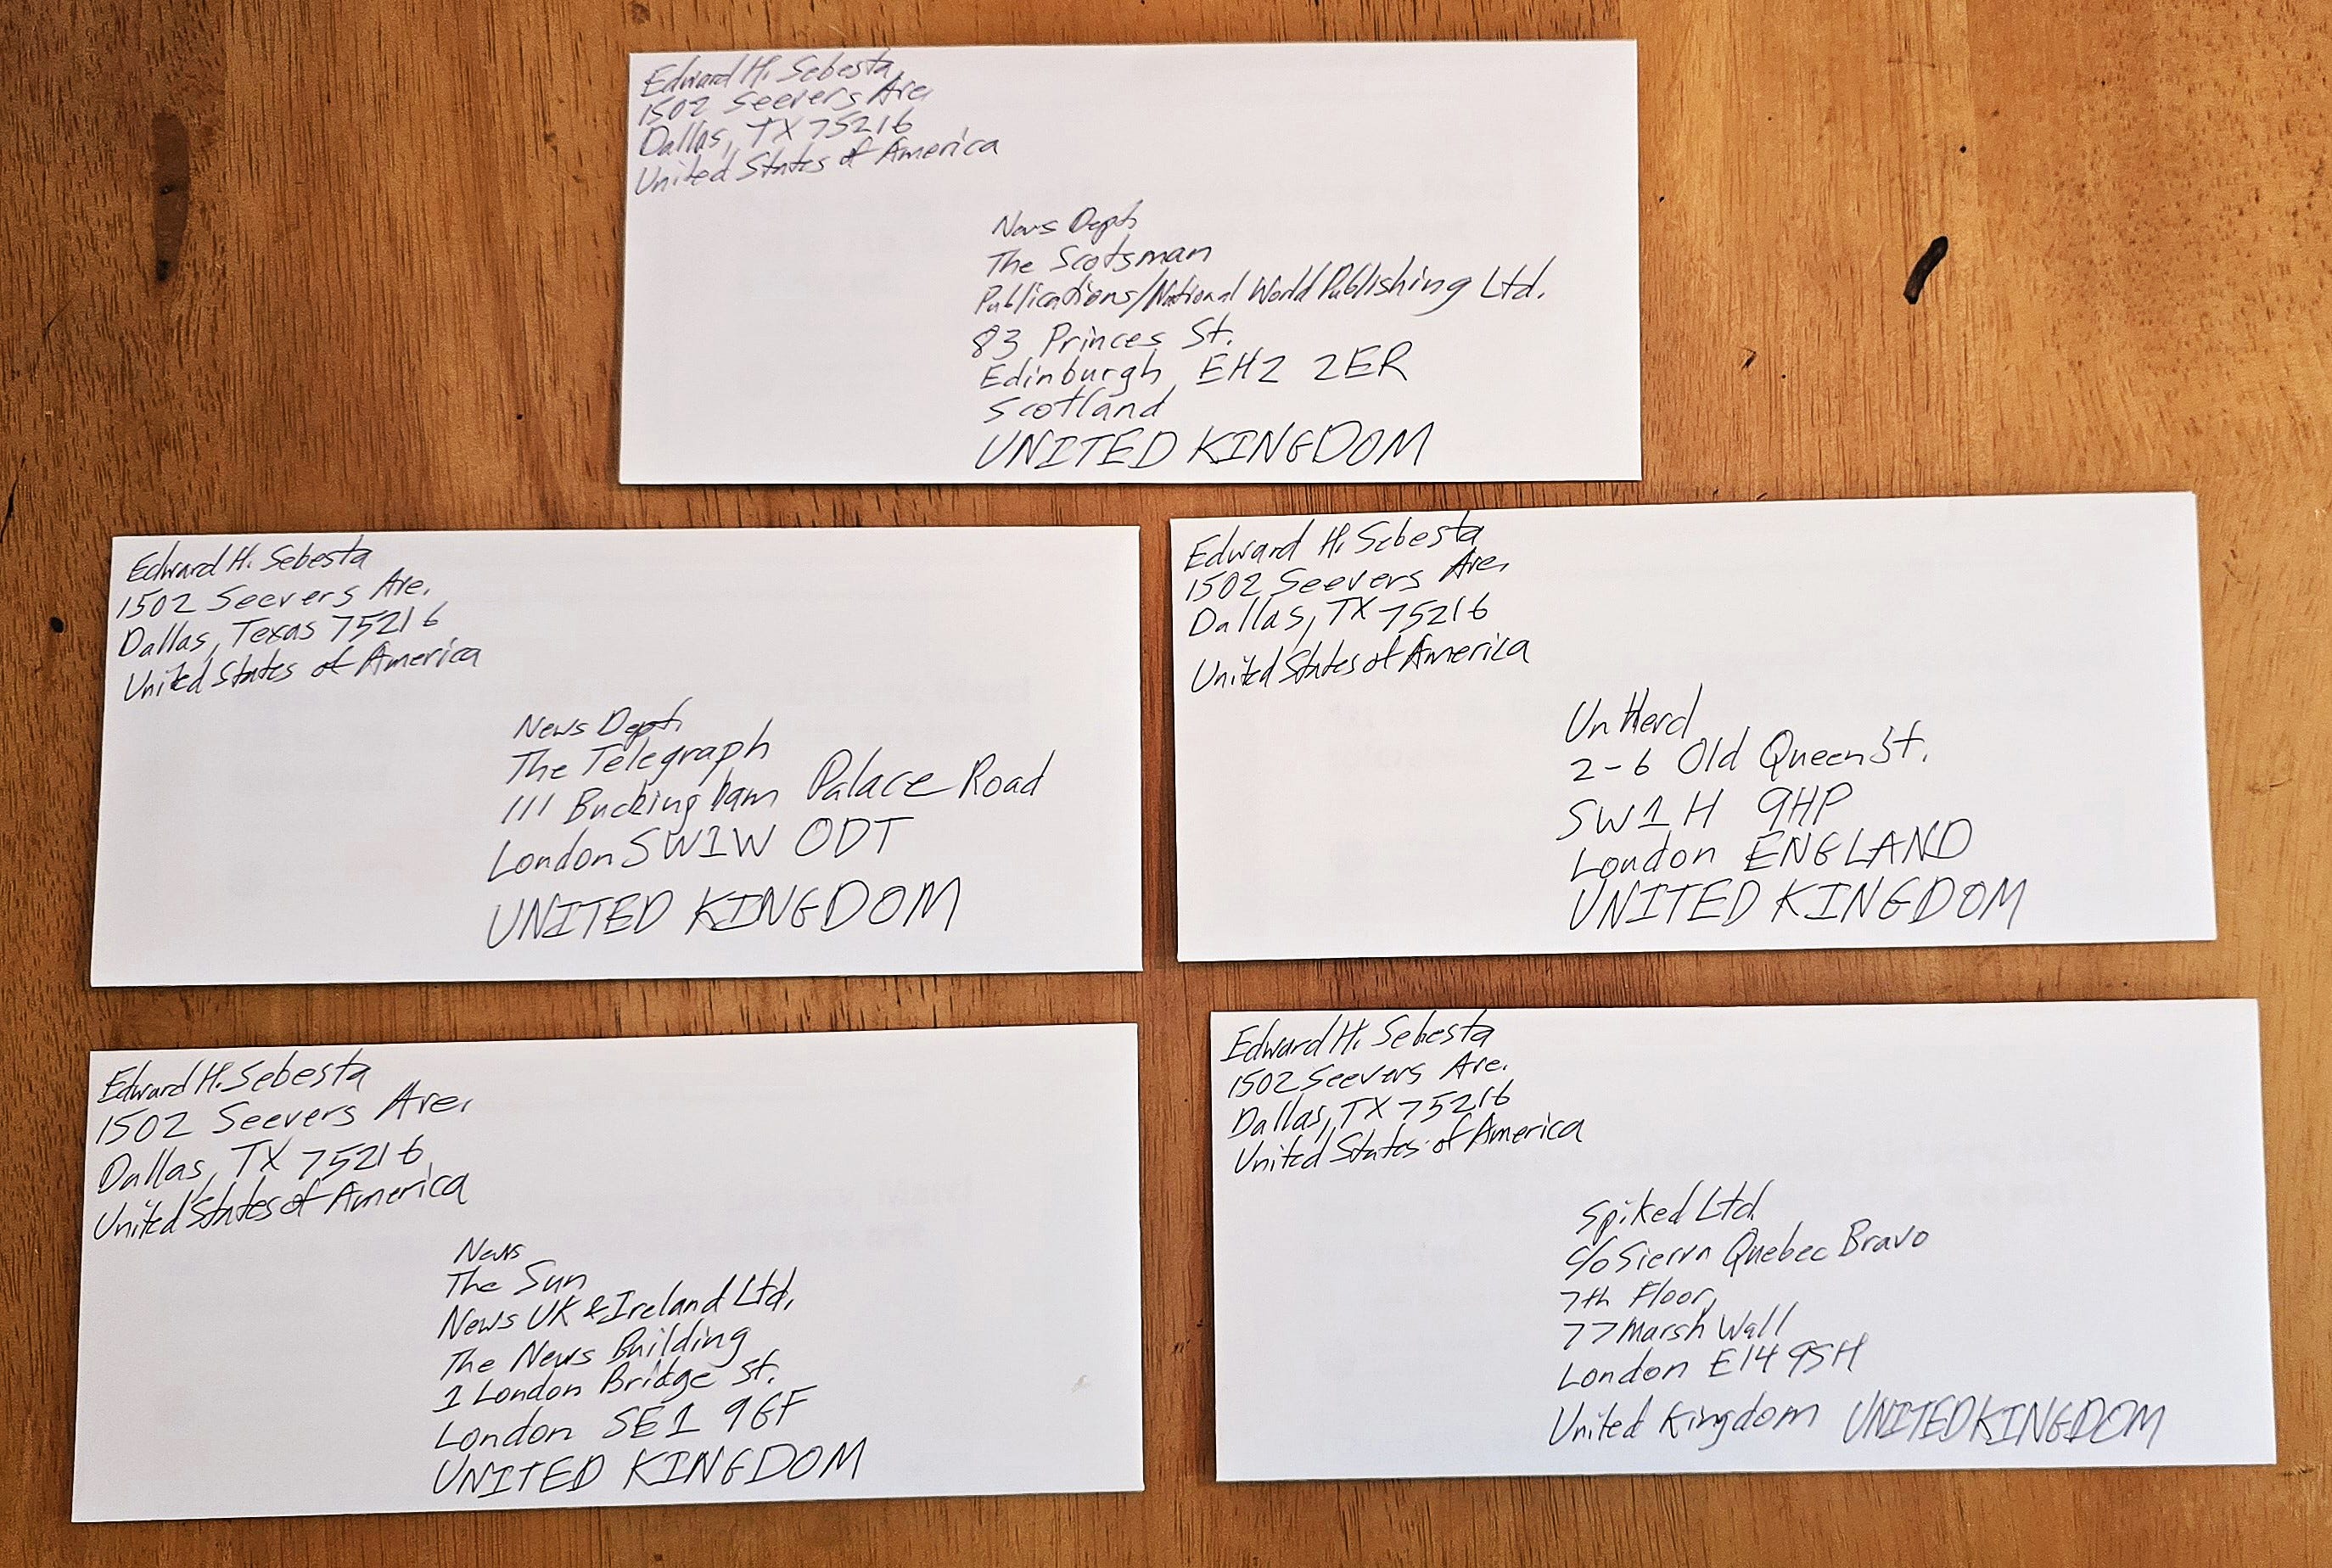 Edward H. Sebesta
1502 Seevers Ave
Dallas, TX 75216
United States of America
News Dept
The Scotsman
Publications/National World Publishing Ltd.
83 Princes St.
Edinburgh, EH2 2ER
Scotland
UNITED KINGDOM
Edward H. Sebesta
1502 Seevers Ave.
Dallas, Texas 75216
United States of America
News Dept
The Telegraph
111 Buckingham Palace Road
London SW1W 0DT
UNITED KINGDOM
Edward H. Sebesta
1502 Seevers Ave.
Dallas, TX 75216
United States of America
UnHerd
2-6 Old Queen St.
SW1H 9HP
London ENGLAND
UNITED KINGDOM
Edward H. Sebesta
1502 Seevers Ave.
Dallas, TX 75216
United States of America
News
The Sun
News UK & Ireland Ltd.
The News Building
1 London Bridge St.
London SE1 9GF
UNITED KINGDOM
Edward H. Sebesta
1502 Seevers Ave.
Dallas, TX 75216
United States of America
Spiked Ltd.
c/o Sierra Quebec Bravo
7th Floor,
77 Marsh Wall
London E14 9SH
United Kingdom UNITED KINGDOM